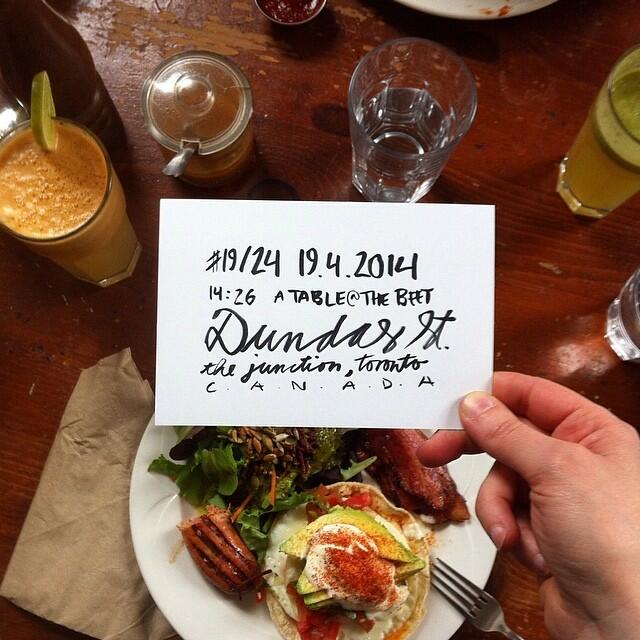 #19/24 19.4.2014
14:26 A TABLE@THE BEET
Dundas St.
the junction, toronto
C.A.N.A.D.A